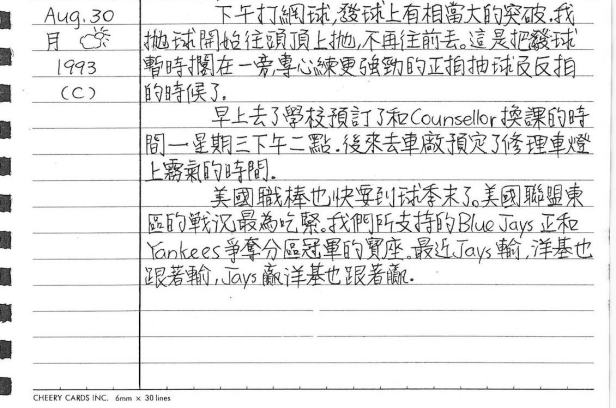 Aug. 30
月
1993
(C)
下午打網球,發球上有相當大的突破.我
拋球開始往頭頂上拋,不再往前去。這是把發球
暫時擱在一旁,專心練更強勁的正拍抽球及反拍
的時候了.
早上去了學校預訂了和Counsellor換課的時
間一星期三下午二點.後來去車廠預定了修理車燈
上霧氣的時間.
美國職棒也快要到球季末了。美國聯盟東
區的戰況最為吃緊。我們所支持的Blue Jays 正和
Yankees爭奪分區冠軍的寶座。最近Jays輸,洋基也
跟著輸,Jays贏洋基也跟著贏.
CHEERY CARDS INC. 6mm × 30 lines